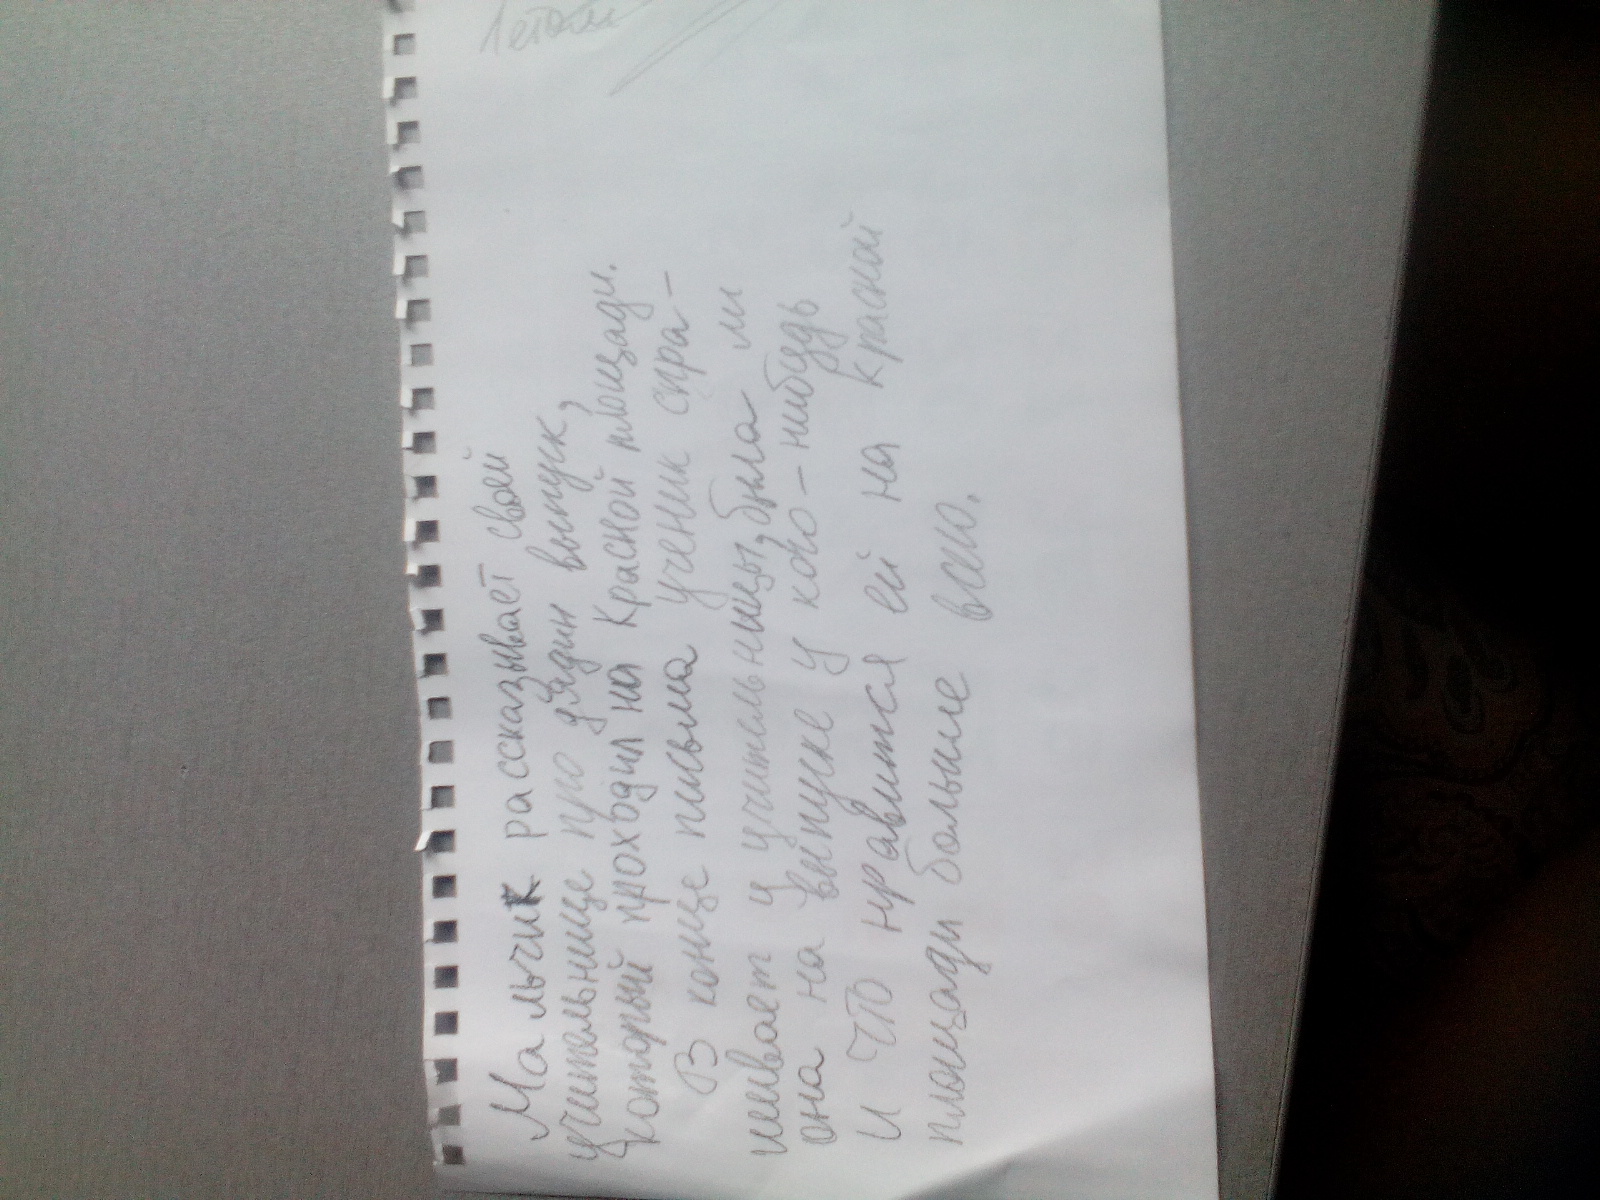 Летом
Мальчик рассказывает свой
учительнице про дядин выпуск,
который проходил на Красной площади.
В конце письма ученик спра-
шивает у учительницы, была ли
она на выпуске у кого-нибудь
И что нравится ей на красной
площади больше всго.